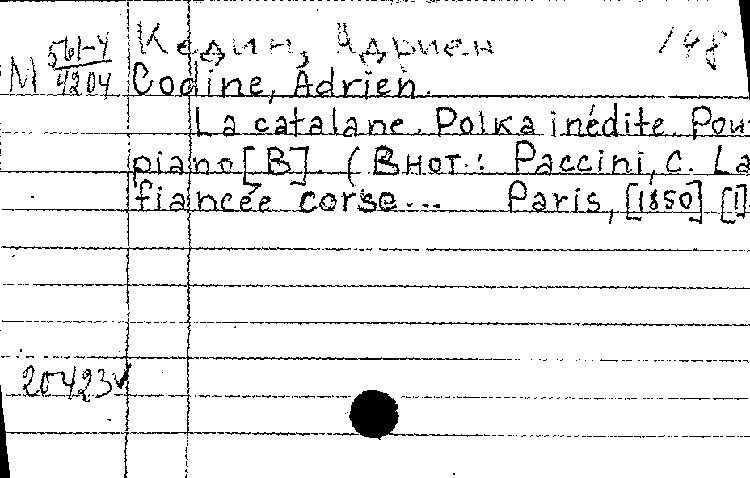 Кодин, Адриен 148
М 561-4/4204 Codine, Adrien.
La catalane. Polka inédite. Pour
piano [B]. (Внот.: Paccini, C. La
fiancée corse... Paris, [1850] [1]
20423